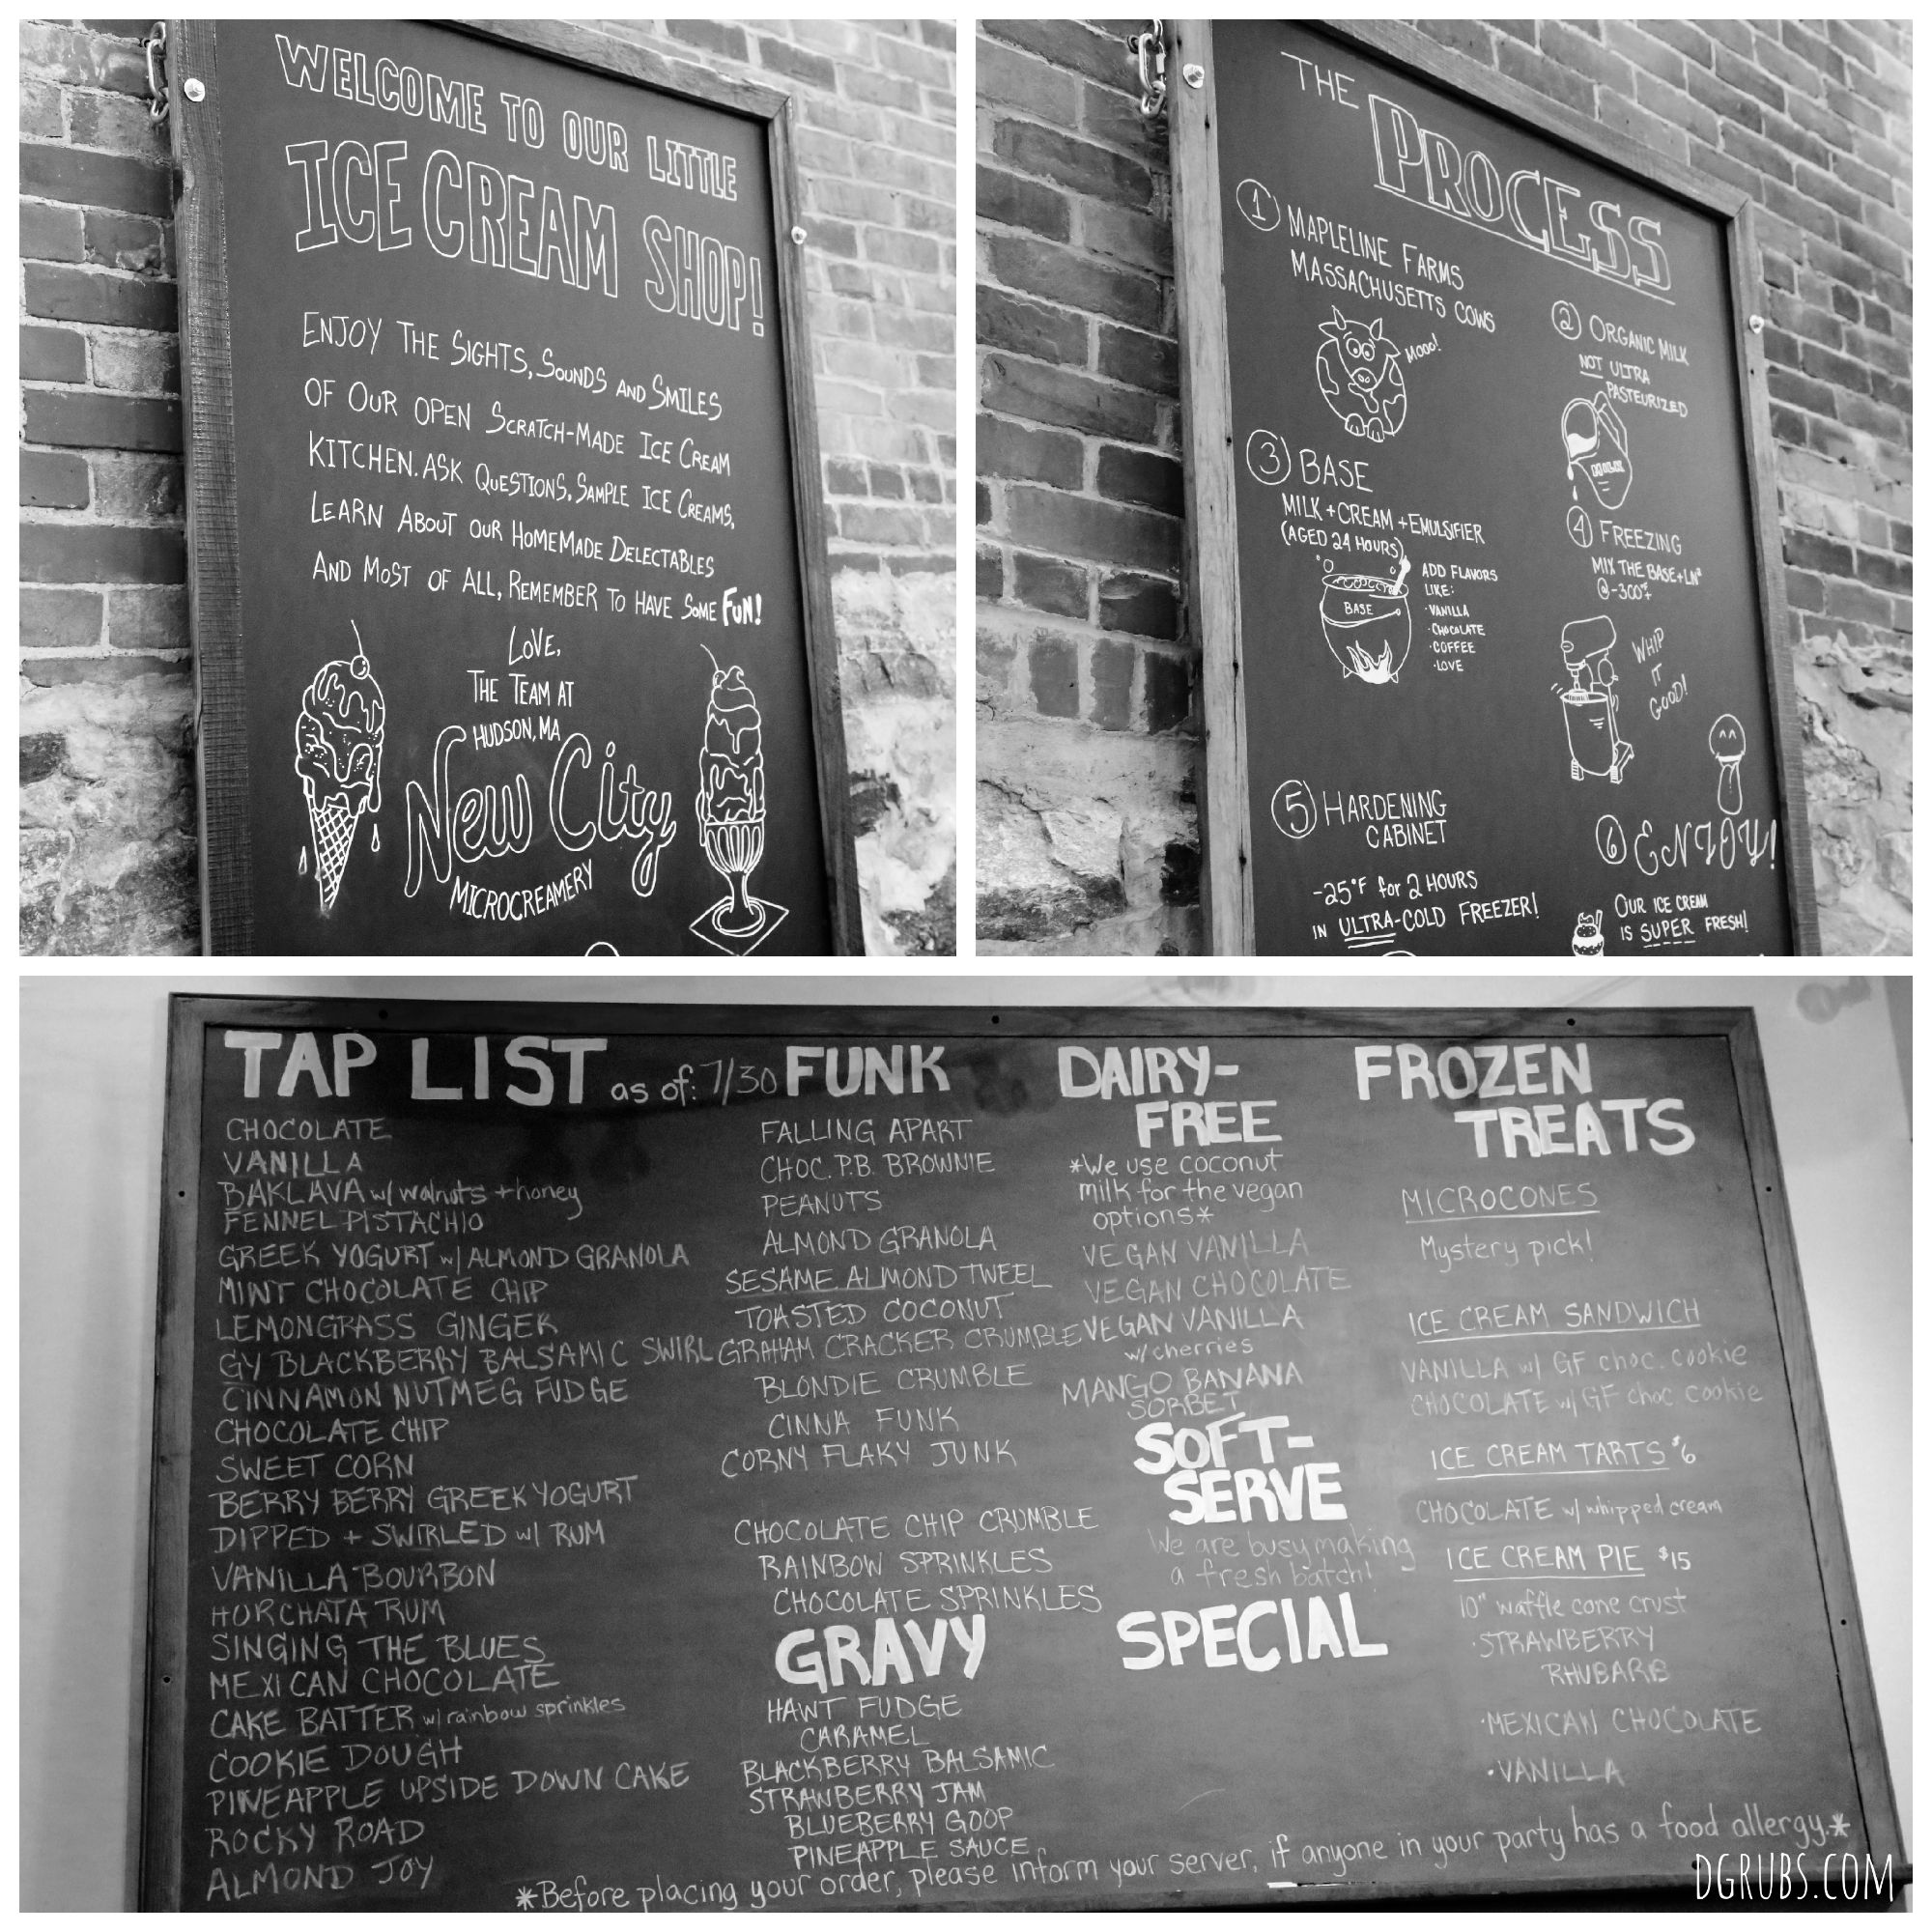 WELCOME TO OUR LITTLE
ICE CREAM SHOP!
ENJOY THE SIGHTS, SOUNDS AND SMILES
OF OUR OPEN SCRATCH-MADE ICE CREAM
KITCHEN. ASK QUESTIONS, SAMPLE ICE CREAMS,
LEARN ABOUT OUR HOMEMADE DELECTABLES
AND MOST OF ALL, REMEMBER TO HAVE SOME FUN!
LOVE,
THE TEAM AT
HUDSON, MA
New City
MICROCREAMERY
THE
PROCESS
1 MAPLELINE FARMS
MASSACHUSETTS COWS
MOOO!
2 ORGANIC MILK
NOT ULTRA
PASTEURIZED
3 BASE
MILK + CREAM + EMULSIFIER
(AGED 24 HOURS)
BASE
ADD FLAVORS
LIKE:
·VANILLA
·CHOCOLATE
·COFFEE
·LOVE
4 FREEZING
MIX THE BASE + LN²
@ -300°F
WHIP
IT
GOOD!
5 HARDENING
CABINET
-25°F for 2 HOURS
IN ULTRA-COLD FREEZER!
6 ENJOY!
OUR ICE CREAM
IS SUPER FRESH!
TAP LIST as of: 7/30
CHOCOLATE
VANILLA
BAKLAVA w/ walnuts + honey
FENNEL PISTACHIO
GREEK YOGURT w/ ALMOND GRANOLA
MINT CHOCOLATE CHIP
LEMONGRASS GINGER
GY BLACKBERRY BALSAMIC SWIRL
CINNAMON NUTMEG FUDGE
CHOCOLATE CHIP
SWEET CORN
BERRY BERRY GREEK YOGURT
DIPPED + SWIRLED w/ RUM
VANILLA BOURBON
HORCHATA RUM
SINGING THE BLUES
MEXICAN CHOCOLATE
CAKE BATTER w/ rainbow sprinkles
COOKIE DOUGH
PINEAPPLE UPSIDE DOWN CAKE
ROCKY ROAD
ALMOND JOY
FUNK
FALLING APART
CHOC. P.B. BROWNIE
PEANUTS
ALMOND GRANOLA
SESAME ALMOND TWEEL
TOASTED COCONUT
GRAHAM CRACKER CRUMBLE
BLONDIE CRUMBLE
CINNA FUNK
CORNY FLAKY JUNK
CHOCOLATE CHIP CRUMBLE
RAINBOW SPRINKLES
CHOCOLATE SPRINKLES
GRAVY
HAWT FUDGE
CARAMEL
BLACKBERRY BALSAMIC
STRAWBERRY JAM
BLUEBERRY GOOP
PINEAPPLE SAUCE
DAIRY-
FREE
*We use coconut
milk for the vegan
options*
VEGAN VANILLA
VEGAN CHOCOLATE
VEGAN VANILLA
w/ cherries
MANGO BANANA
SORBET
SOFT-
SERVE
We are busy making
a fresh batch!
SPECIAL
FROZEN
TREATS
MICROCONES
Mystery pick!
ICE CREAM SANDWICH
VANILLA w/ GF choc. cookie
CHOCOLATE w/ GF choc cookie
ICE CREAM TARTS $6
CHOCOLATE w/ whipped cream
ICE CREAM PIE $15
10" waffle cone crust
·STRAWBERRY
RHUBARB
·MEXICAN CHOCOLATE
·VANILLA
*Before placing your order, please inform your server, if anyone in your party has a food allergy.*
DGRUBS.COM